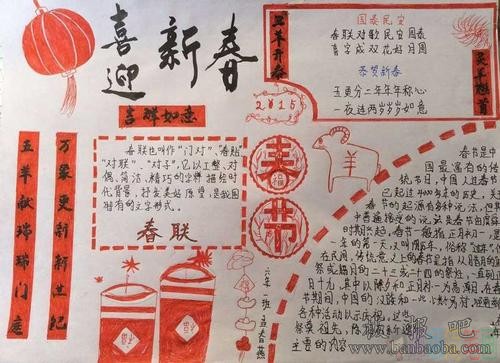 喜迎新春
吉祥如意
万象更新新世纪
五羊献瑞瑞门庭
春联也叫作"门对"、"春贴"
"对联"、"对子",它以工整、对
偶、简洁、精巧的文字描绘时
代背景,抒发美好愿望,是我国
特有的文字形式。
春联
三羊开泰
2015
国泰民安
春联对歌民安国泰
喜字成双花好月圆
恭贺新春
五更分二年年年称心
一夜连两岁岁岁如意
灵羊雄首
春节
羊
福
六年一班
春节是中
国最富有的传
统节日,中国人过春节
已超过4000年的历史,关
春节的起源有多种说法,但
中普遍接受的说
春节一般指正月初一,是
一年的第一天,又叫阴历年,俗称"过年"
在民间,传统意义上的春节是指从
祭或腊月的二十三或二十四的祭灶,一直到
月十九,其中以除夕和正月初一为高潮,在春
节期间,中国的汉族和一些少数民族都
各种活动以示庆祝,这些
祭奠祖先、除旧
主要的内容
板报吧
www.banbaoba.com